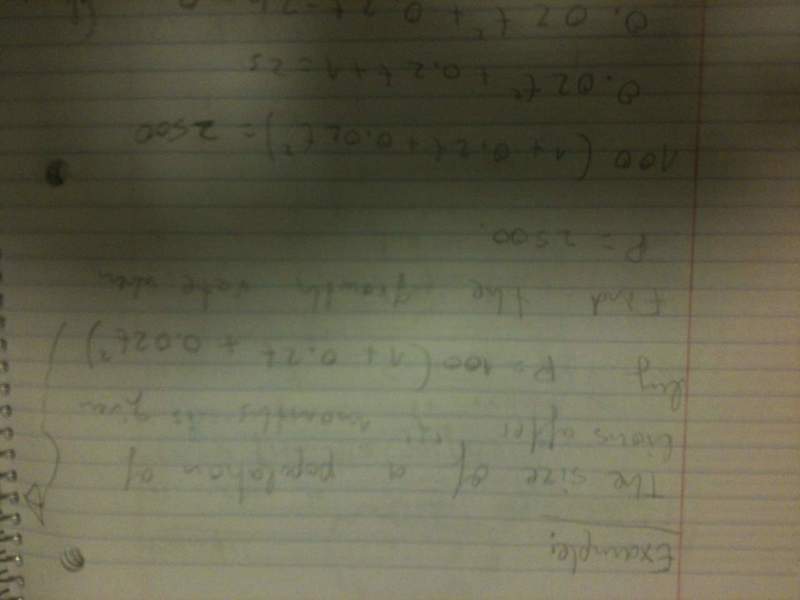 Example:
The size of a population of
lions after t months is given
by P = 100 (1 + 0.2t + 0.02t²)
Find the growth rate when
P = 2500.
100 (1 + 0.2t + 0.02t²) = 2500
0.02t² + 0.2t + 1 = 25
0.02t² + 0.2t - 24